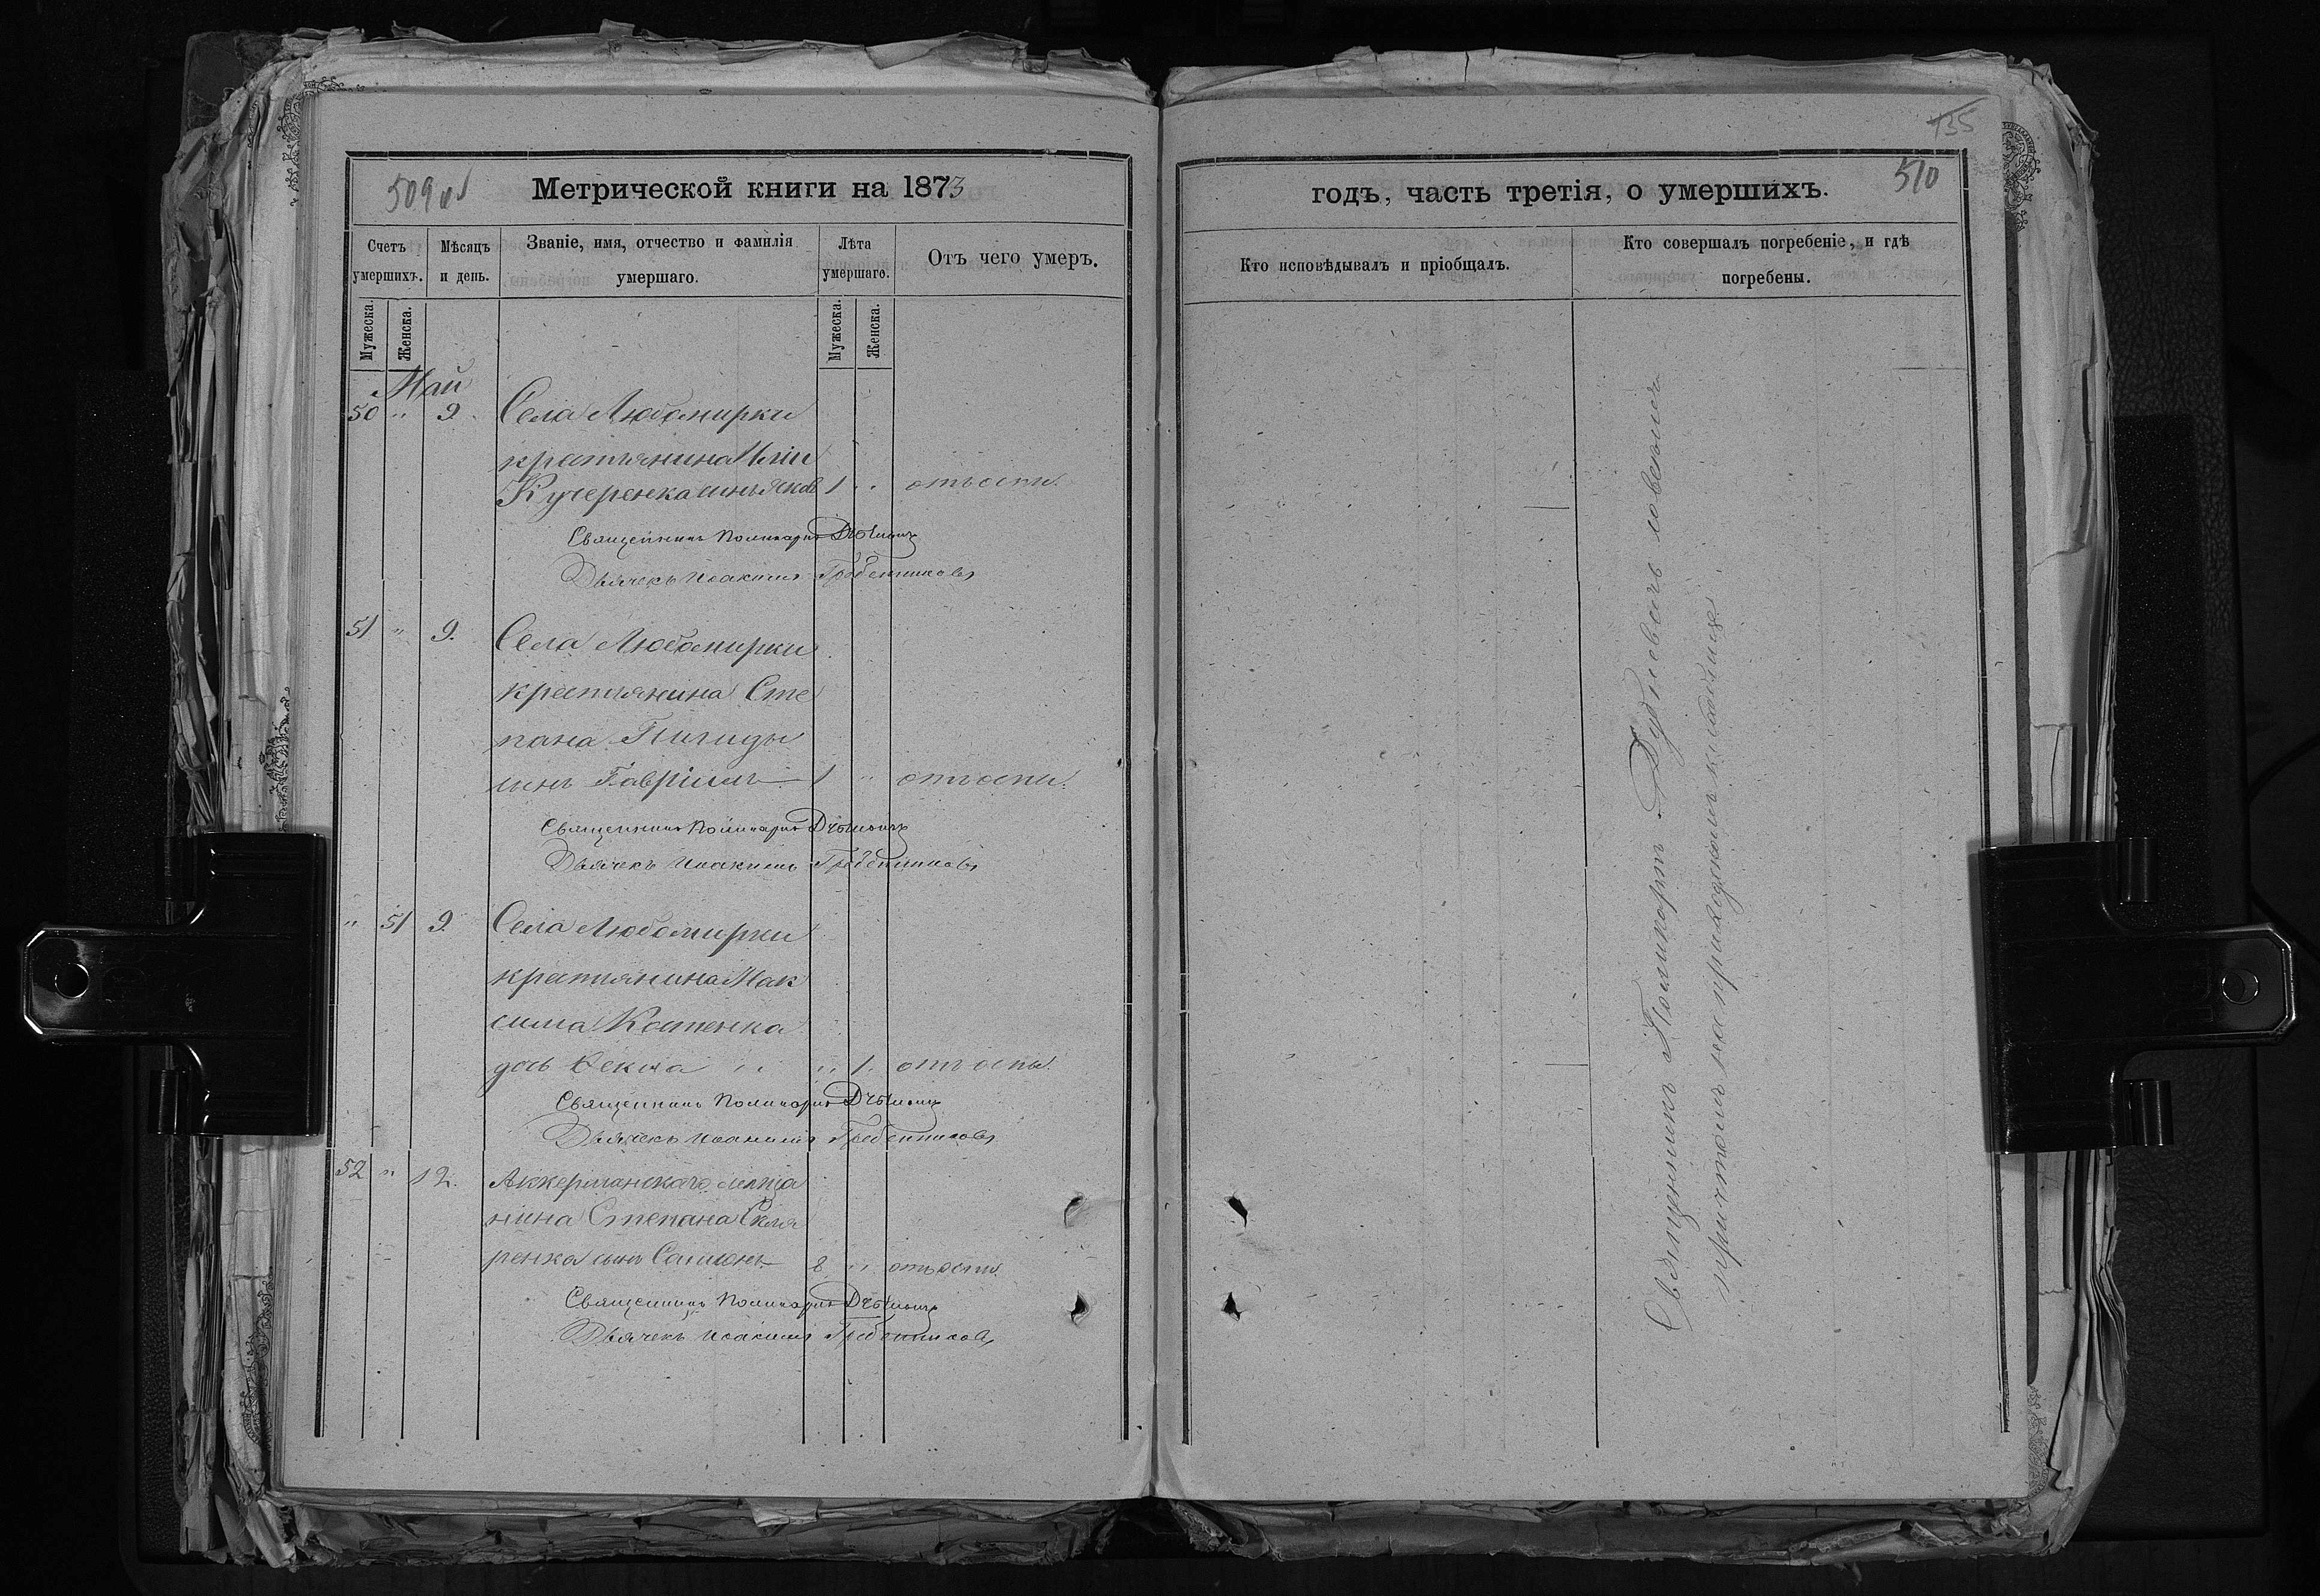 509 об
Метрической книги на 1873
Счетъ умершихъ.
Мѣсяцъ и день.
Званіе, имя, отчество и фамилія умершаго.
Лѣта умершаго.
Отъ чего умеръ.
Мужеска.
Женска.
Мужеска.
Женска.
Май
50 " 9. Села Любомирки
крестьянина Иліи
Кучеренка сынъ Яковъ 1 " отъ оспы.
Священникъ Поликарпъ
Дьячекъ Иоакимъ Гребенниковъ
51 " 9. Села Любомирки
крестьянина Сте
пана
сынъ Гавріилъ 1 " отъ оспы.
Священникъ Поликарпъ
Дьячекъ Иоакимъ Гребенниковъ
" 51 9. Села Любомирки
крестьянина Мак
сима Костенка
дочь Фекла " 1. отъ оспы.
Священникъ Поликарпъ
Дьячекъ Иоакимъ Гребенниковъ
52 " 12. Аккерманскаго мѣща
нина Степана Скля
ренка сынъ 8 " отъ оспы.
Священникъ Поликарпъ
Дьячекъ Иоакимъ Гребенниковъ
135
510
годъ, часть третія, о умершихъ.
Кто исповѣдывалъ и пріобщалъ.
Кто совершалъ погребеніе, и гдѣ погребены.
Священникъ Поликарпъ съ
причтомъ на приходскомъ кладбищѣ.